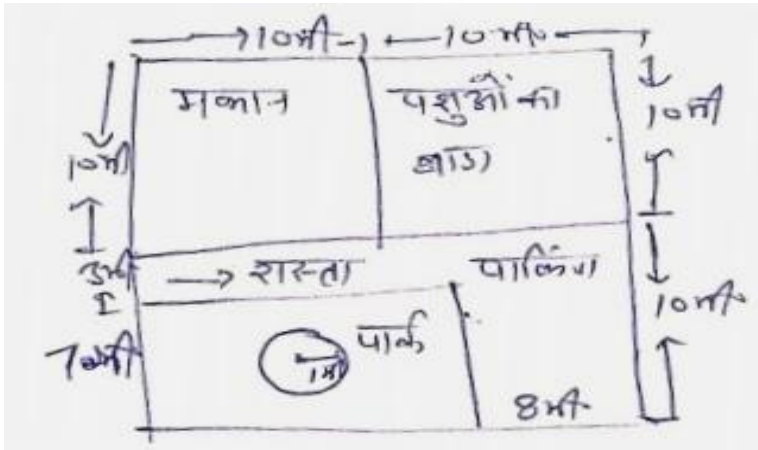 10मी
10मी.
मकान
पशुओं का
बाडा
10मी
10मी
3मी
रास्ता
पार्किंग
10मी.
7मी
पार्क
1मी
8मी.